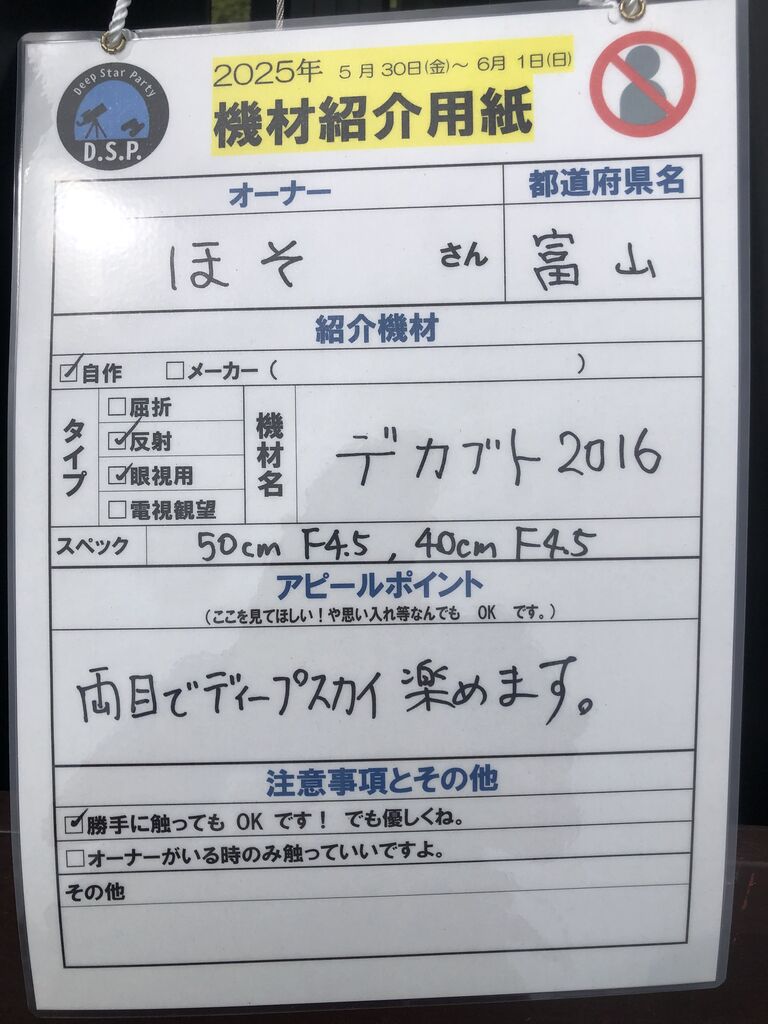 Deep Star Party
D.S.P.
2025年 5月30日(金)～ 6月 1日(日)
機材紹介用紙
オーナー
都道府県名
ほそ さん
富山
紹介機材
☑自作 □メーカー ( )
タイプ
□屈折
☑反射
☑眼視用
□電視観望
機材名
デカブト 2016
スペック
50cm F4.5 , 40cm F4.5
アピールポイント
(ここを見てほしい！や思い入れ等なんでも OK です。)
両目でディープスカイ 楽めます。
注意事項とその他
☑勝手に触っても OK です！ でも優しくね。
□オーナーがいる時のみ触っていいですよ。
その他